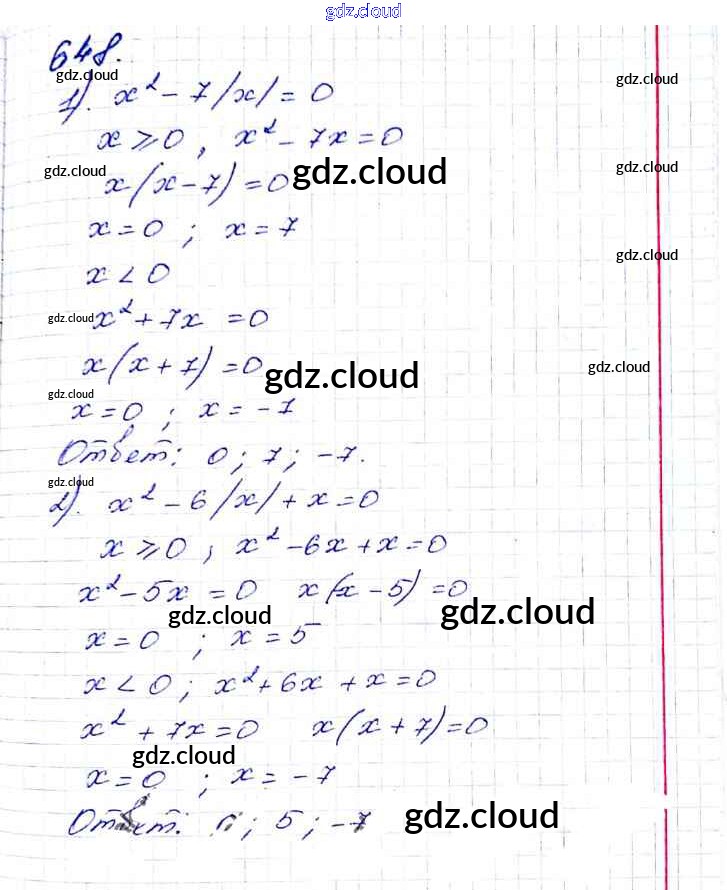 gdz.cloud
648.
gdz.cloud gdz.cloud
1). x² - 7/x/ = 0
x ≥ 0, x² - 7x = 0
gdz.cloud gdz.cloud gdz.cloud
x(x - 7) = 0
x = 0 ; x = 7
gdz.cloud
x < 0
gdz.cloud
x² + 7x = 0
x(x + 7) = 0
gdz.cloud gdz.cloud
gdz.cloud
x = 0 ; x = -7
Ответ: 0 ; 7 ; -7.
gdz.cloud
2). x² - 6/x/ + x = 0
x ≥ 0 ; x² - 6x + x = 0
x² - 5x = 0 x(x - 5) = 0
gdz.cloud gdz.cloud
x = 0 ; x = 5
x < 0 ; x² + 6x + x = 0
x² + 7x = 0 x(x + 7) = 0
gdz.cloud
x = 0 ; x = -7
Ответ: 0 ; 5 ; -7
gdz.cloud